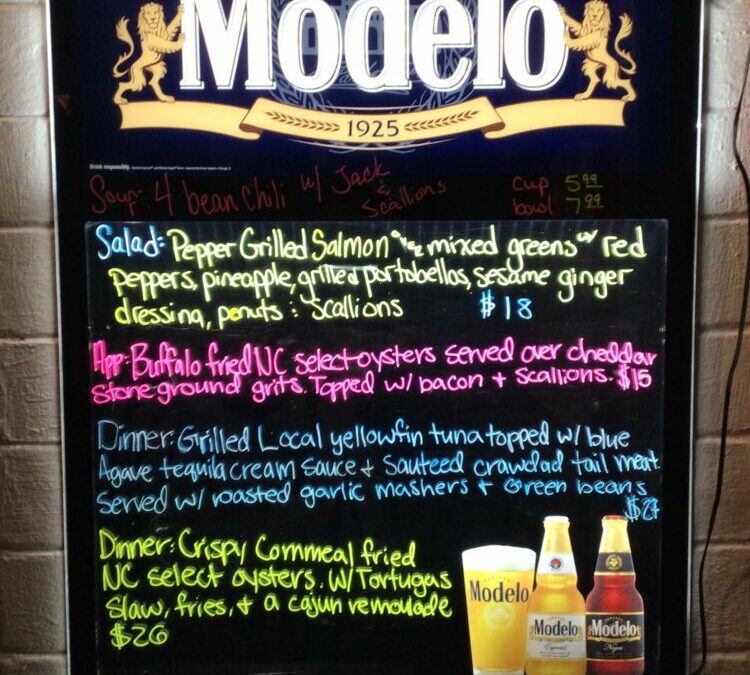 Modelo
1925
Drink responsibly.
Soup: 4 bean chili w/ Jack & Scallions
cup 5.99
bowl 7.99
Salad: Pepper Grilled Salmon mixed greens w/ red
peppers, pineapple, grilled portobellos, sesame ginger
dressing, penuts : scallions $18
App: Buffalo fried NC select oysters served over cheddar
stone ground grits. Topped w/ bacon + scallions. $15
Dinner: Grilled Local yellowfin tuna topped w/ blue
Agave tequila cream sauce + sauteed crawdad tail meat.
Served w/ roasted garlic mashers + Green beans
$27
Dinner: Crispy Cornmeal fried
NC select oysters. w/ Tortugas
slaw, fries, + a cajun remoulade
$26
Modelo
Modelo
Especial
Modelo
Negra